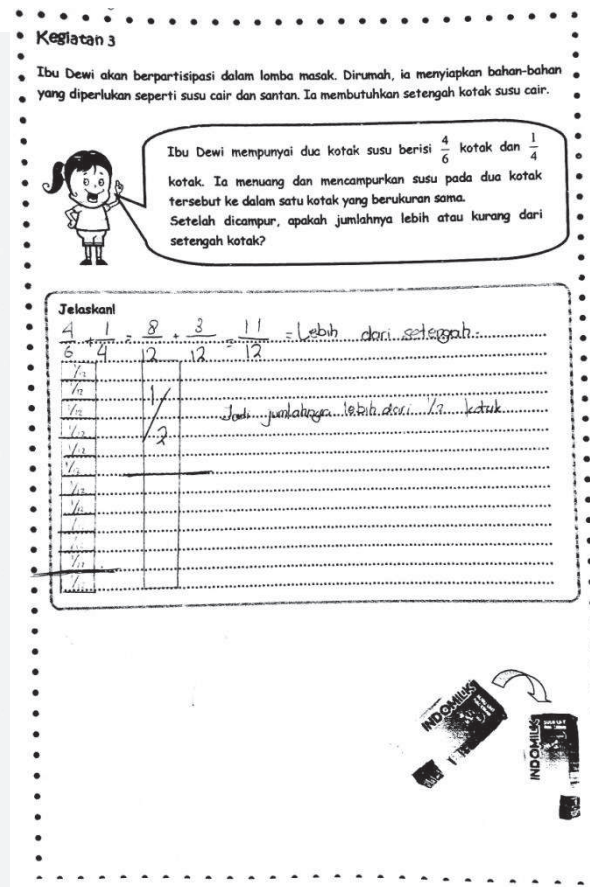 Kegiatan 3
Ibu Dewi akan berpartisipasi dalam lomba masak. Dirumah, ia menyiapkan bahan-bahan
yang diperlukan seperti susu cair dan santan. Ia membutuhkan setengah kotak susu cair.
Ibu Dewi mempunyai dua kotak susu berisi 4/6 kotak dan 1/4
kotak. Ia menuang dan mencampurkan susu pada dua kotak
tersebut ke dalam satu kotak yang berukuran sama.
Setelah dicampur, apakah jumlahnya lebih atau kurang dari
setengah kotak?
Jelaskan!
4/6 + 1/4 = 8/12 + 3/12 = 11/12 = Lebih dari setengah.
1/12
1/12
1/12
1/12
1/12
1/12
1/12
1/12
1/12
1/12
1/2
Jadi jumlahnya lebih dari 1/2 kotak
INDOMILK
INDOMILK